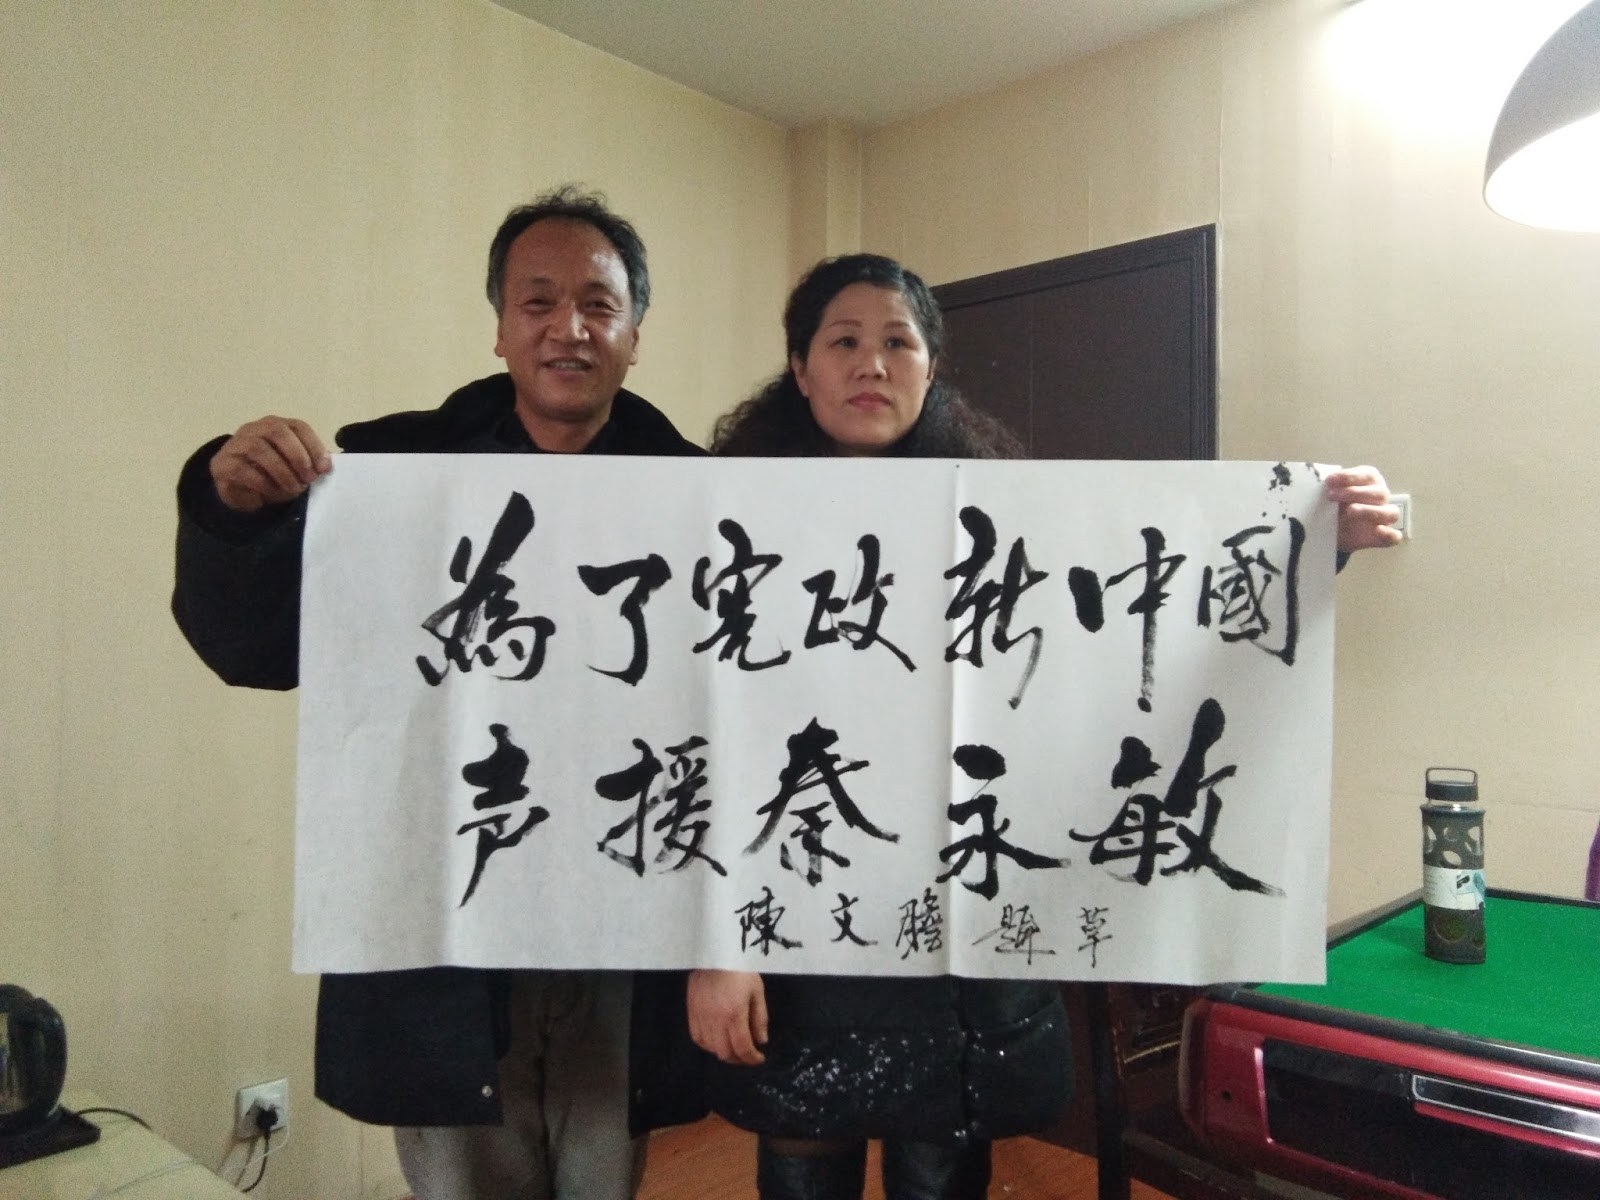 為了宪政新中國
声援秦永敏
陳文膽題草